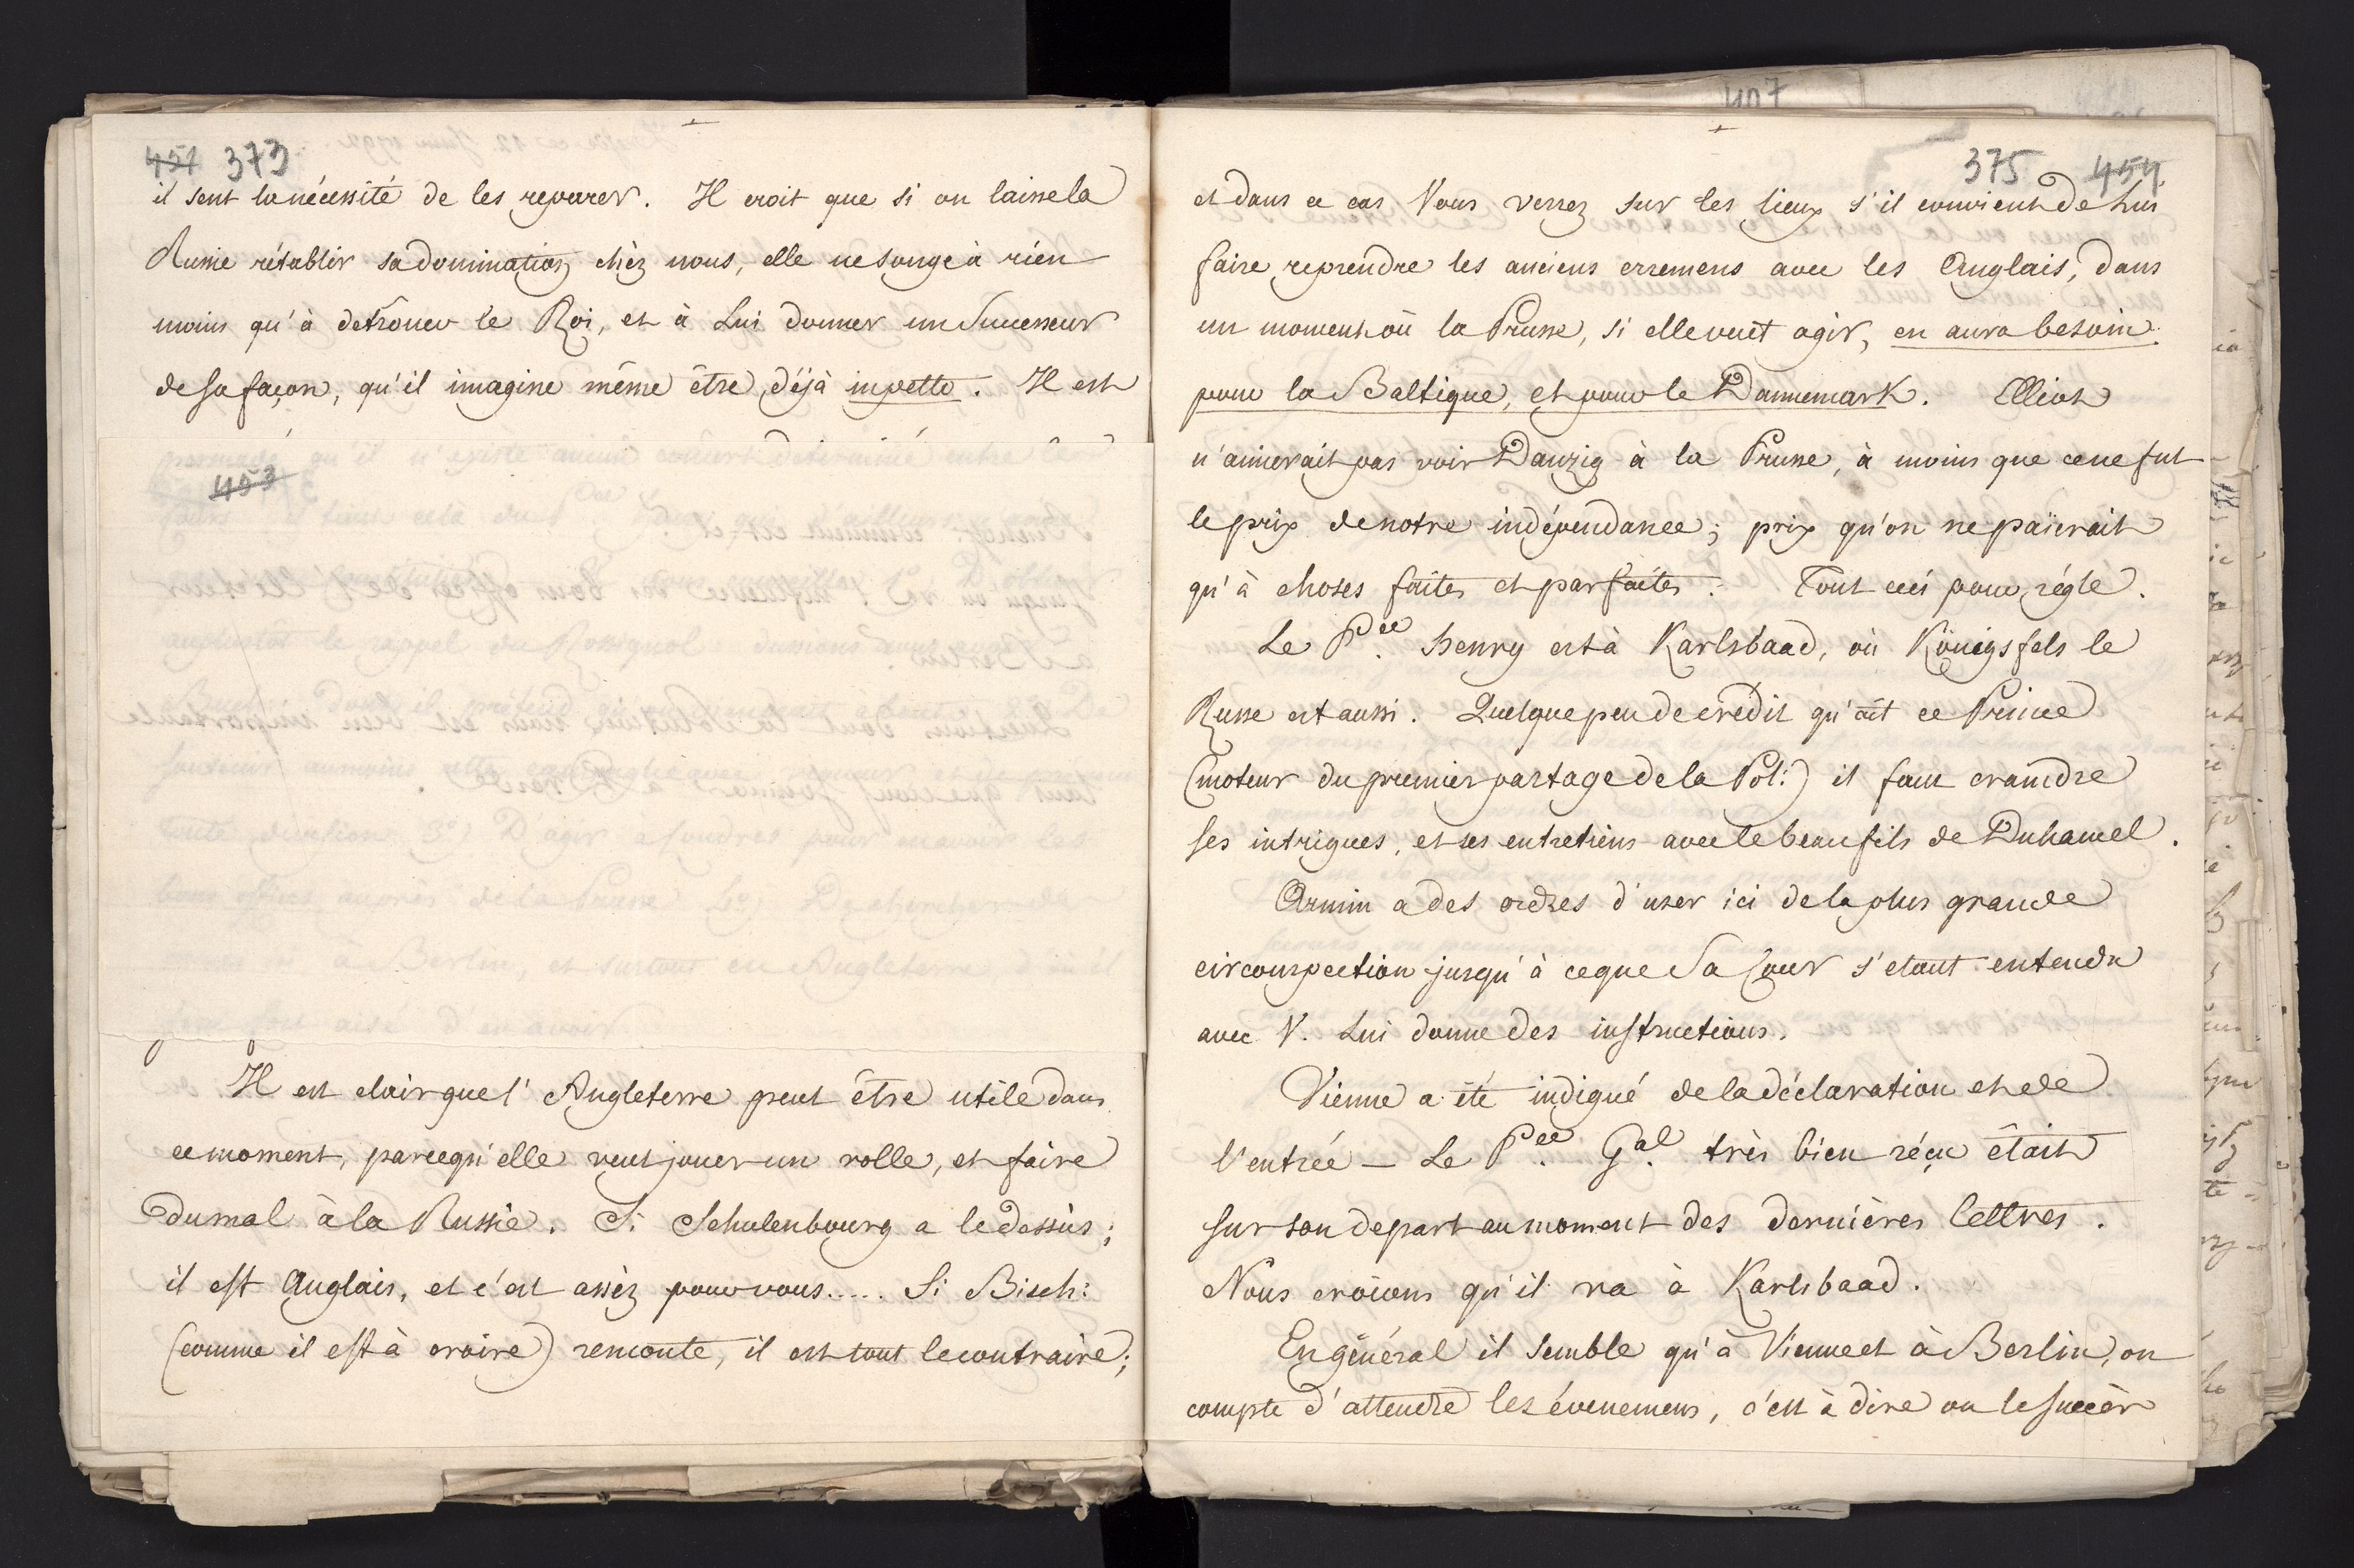 451 373
il sent la nécessité de les reparer. Il croit que si on laisse la
Russie rétablir sa domination chèz nous, elle ne songe à rien
moins qu'à detrôner le Roi, et à Lui donner un Successeur
de sa façon, qu'il imagine même être déjà inpetto. Il est
453
Il est clair que l'Angleterre peut être utile dans
ce moment, parcequ'elle veut jouer un rolle, et faire
du mal à la Russie. Si Schulenbourg a le dessùs;
il est Anglais, et c'est assèz pour vous..... Si Bisch:
(comme il est à croire) remonte, il est tout le contraire;
407
375 454
et dans ce cas Vous verrez sur les lieux s'il convient de Lui
faire reprendre les anciens erremens avec les Anglais, dans
un moment où la Prusse, si elle veut agir, en aura besoin
pour la Baltique, et pour le Dannemark. Elliot
n'aimerait pas voir Danzig à la Prusse, à moins que ce ne fut
le prix de notre indépendance; prix qu'on ne païerait
qu'à choses faites et parfaites. Tout ceci pour régle.
Le P.ce Henry est à Karlsbaad, où Königsfels le
Russe est aussi. Quelque peu de crédit qu'ait ce Prince
(moteur du premier partage de la Pol:) il faut craindre
ses intrigues, et ses entretiens avec le beau fils de Duhamel.
Armin a des ordres d'user ici de la plus grande
circonspection jusqu'à ce que Sa Cour s'etant entendu
avec V. Lui donne des instructions.
Vienne a été indigné de la déclaration et de
l'entrée – Le P.ce G.al très bien réçu était
sur son depart au moment des dernières lettres.
Nous croïons qu'il va à Karlsbaad.
En général il semble qu'à Vienne et à Berlin, on
compte d'attendre les évenemens, c'est à dire ou le succès